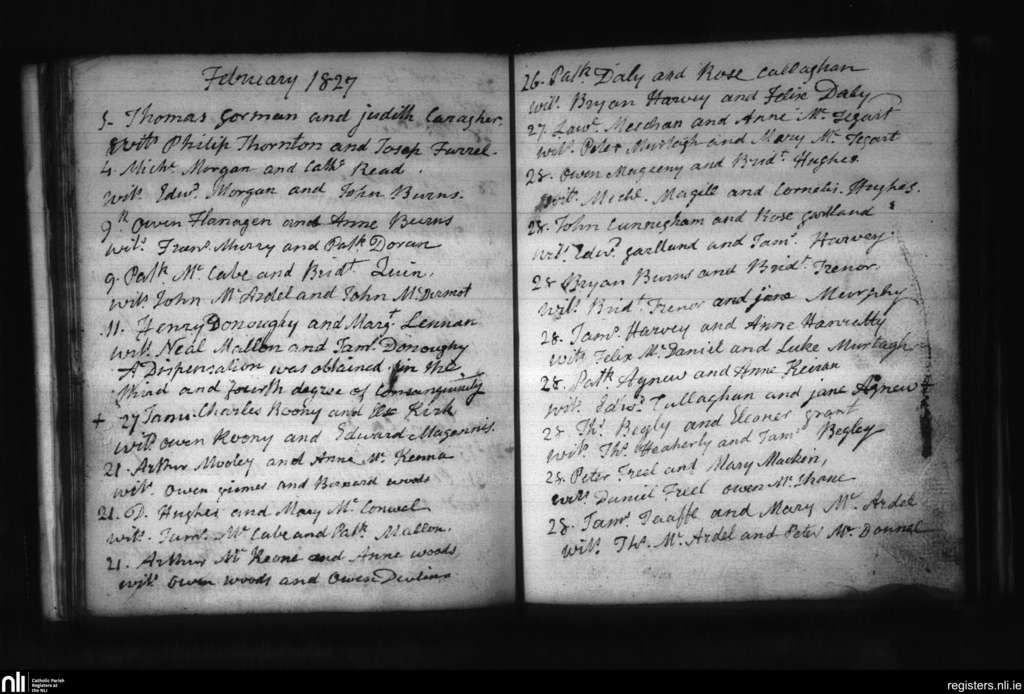 February 1827
5- Thomas Gorman and judith Caragher.
wits Philip Thornton and Josap Farrel.
4. Michl. Morgan and Cathe. Read.
wits. Edwd. Morgan and John Burns.
9th Owen Flanagen and Anne Burns
wits. Frans. Murry and Patk Doran
9. Patk Mc Cabe and Bridt. Quin.
wits John Mc Ardel and John McDermot
11. Henry Donoughy and Margt Lennan
wits. Neal Mallon and Jams. Donoughy
A Dispensation was obtained in the
third and fourth degree of Consanguinity
+ 27 Charles Roony and Kirk
wits owen Roony and Edward Magennis.
21. Arthur Mooley and Anne Mc Kenna
wits. Owen grimes and Bernard woods
21. D. Hughes and Mary Mc Conwel
wits. Jams. Mc Cabe and Patk. Mallon.
21. Arthur Mc Keone and Anne woods
wits owen woods and Owen Devlin
26. Patk Daly and Rose Callaghan
wits. Bryan Harvey and Felix Daly
27 Lawe. Meechan and Anne Mc Tegart
wits. Peter Murtagh and Mary Mc Tegart
28. Owen Mageeny and Bridt. Hughes.
wits. Michl. Magill and Cornelis. Hughes.
28. John Cunnigham and Rose gartland
wits. Edwd. gartland and Jams. Harvey.
28 Bryan Burns and Bridt. Trenor.
wits. Bridt. Trenor and jane Murphy
28. Jams. Harvey and Anne Hanretty
wits Felix McDaniel and Luke Murtagh
28. Patk Agnew and Anne Keiran
wits. Edwd. Cullaghan and jane Agnew +
28 Ths. Begly and Eleaner grant
wits. Ths. Heatherly and Jams Begley
28. Peter Treel and Mary Mackin,
wits Daniel Treel owen Mc Shane
28. Jams. Taaffe and Mary Mc Ardel
wits. Ths. Mc Ardel and Peter Mc Donnel
nli Catholic Parish
Registers at
the NLI
registers.nli.ie